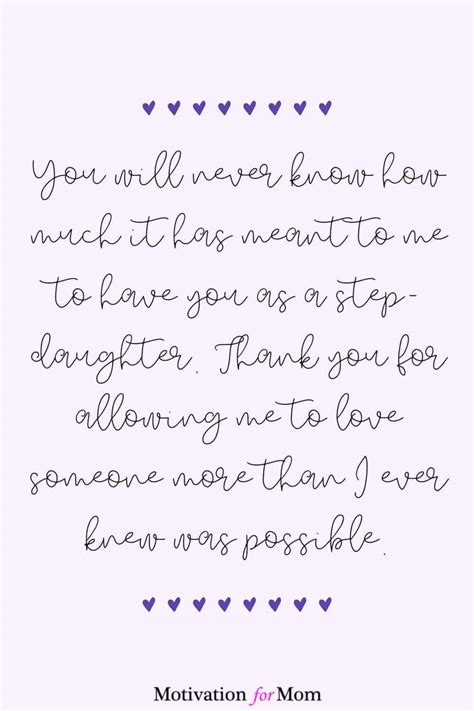 You will never know how
much it has meant to me
to have you as a step-
daughter. Thank you for
allowing me to love
someone more than I ever
knew was possible.
Motivation for Mom